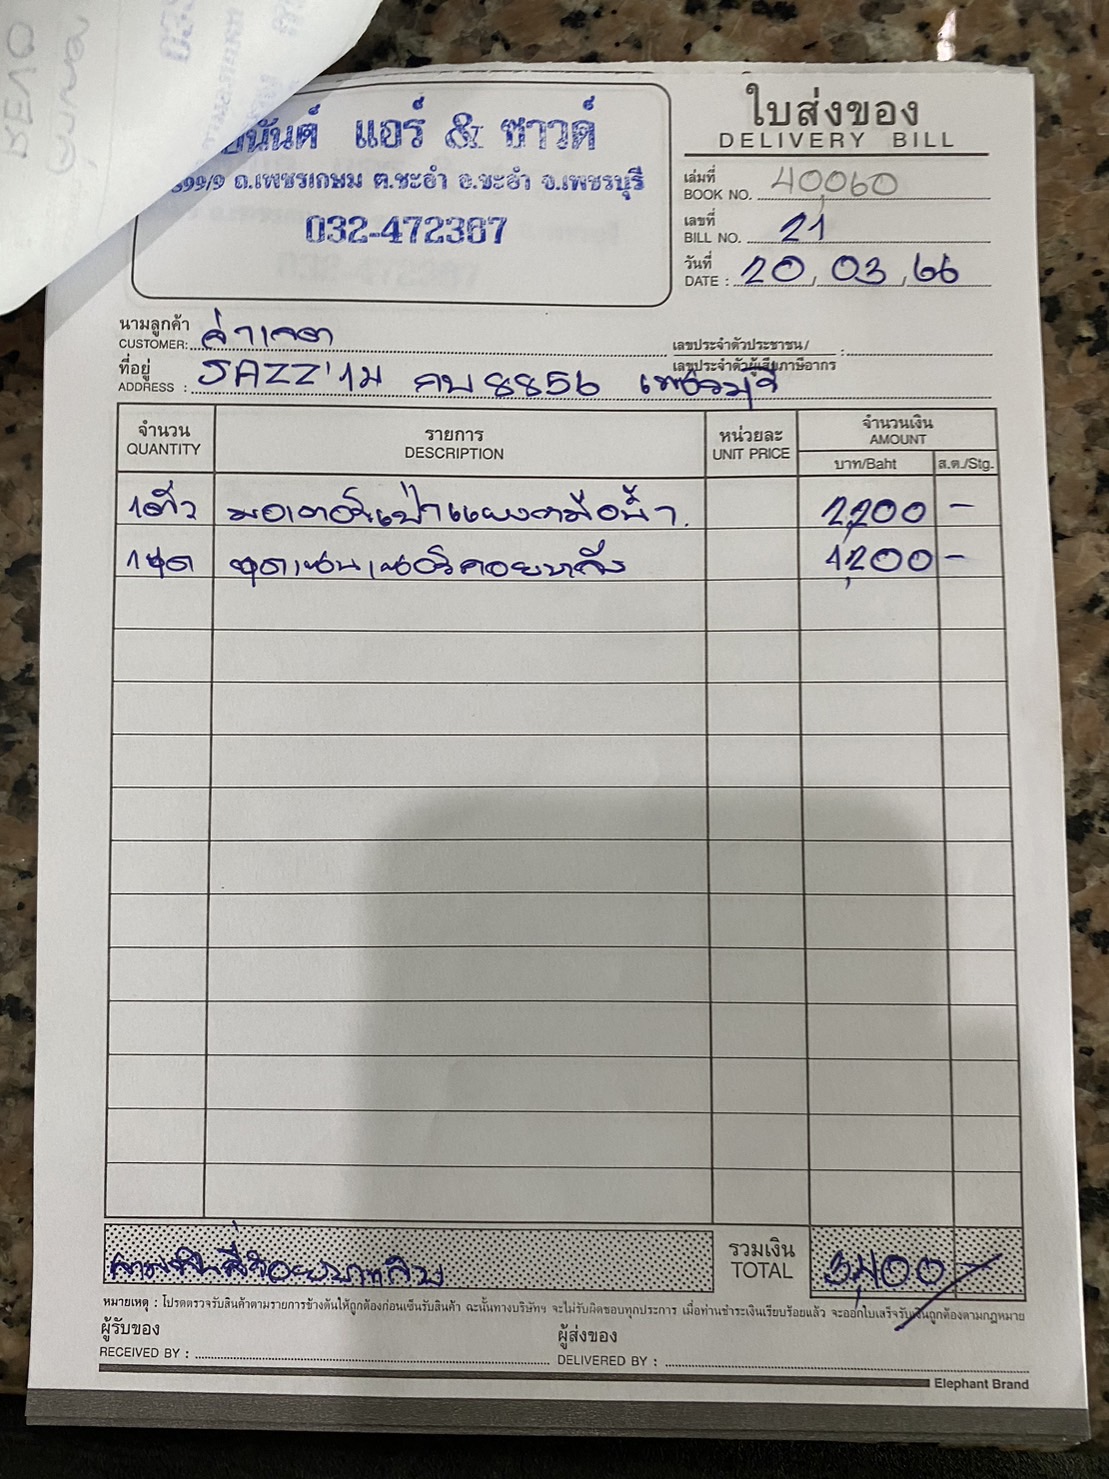 REVO
นันต์ แอร์ & ซาวด์
899/9 ถ.เพชรเกษม ต.ชะอำ อ.ชะอำ จ.เพชรบุรี
032-472367
ใบส่งของ
DELIVERY BILL
เล่มที่
BOOK NO. 40,060
เลขที่
BILL NO. 21
วันที่
DATE : 20, 03, 66
นามลูกค้า
CUSTOMER:
เลขประจำตัวประชาชน/
เลขประจำตัวผู้เสียภาษีอากร :
ที่อยู่
ADDRESS : JAZZ'1ม กบ8856 เพชรบุรี
จำนวน QUANTITY รายการ DESCRIPTION หน่วยละ UNIT PRICE จำนวนเงิน AMOUNT
บาท/Baht ส.ต./Stg.
1ตัว มอเตอร์เป่าแผงกมือน้ำ. 2,200 -
1ชุด ชุดเซนเซอร์คอยหลัง 1,200 -
สามพันสี่ร้อยบาทถ้วน รวมเงิน TOTAL 3,400 -
หมายเหตุ : โปรดตรวจรับสินค้าตามรายการข้างต้นให้ถูกต้องก่อนเซ็นรับสินค้า ฉะนั้นทางบริษัทฯ จะไม่รับผิดชอบทุกประการ เมื่อท่านชำระเงินเรียบร้อยแล้ว จะออกใบเสร็จรับเงินถูกต้องตามกฎหมาย
ผู้รับของ
RECEIVED BY :
ผู้ส่งของ
DELIVERED BY :
Elephant Brand